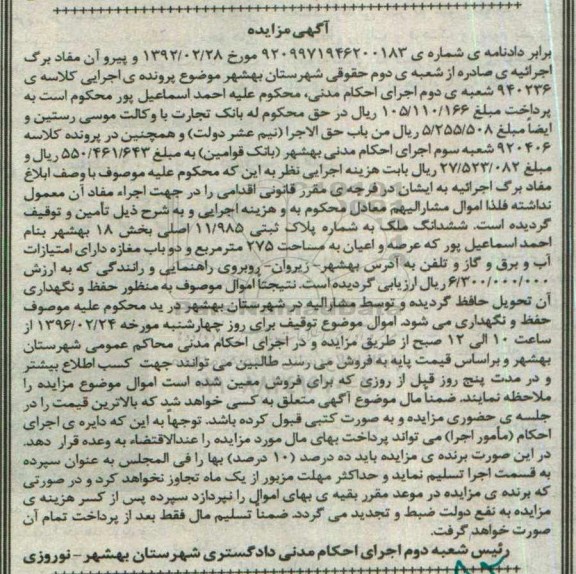 آگهی مزایده
برابر دادنامه ی شماره ی ۹۲۰۹۹۷۱۹۴۶۲۰۰۱۸۳ مورخ ۱۳۹۲/۰۲/۲۸ و پیرو آن مفاد برگ
اجرائیه ی صادره از شعبه ی دوم حقوقی شهرستان بهشهر موضوع پرونده ی اجرایی کلاسه ی
۹۴۰۲۳۶ شعبه ی دوم اجرای احکام مدنی، محکوم علیه احمد اسماعیل پور محکوم است به
پرداخت مبلغ ۱۰۵/۱۱۰/۱۶۶ ریال در حق محکوم له بانک تجارت با وکالت موسی رستین و
ایضاً مبلغ ۵/۲۵۵/۵۰۸ ریال من باب حق الاجرا (نیم عشر دولت) و همچنین در پرونده کلاسه
۹۲۰۴۰۶ شعبه سوم اجرای احکام مدنی بهشهر (بانک قوامین) به مبلغ ۵۵۰/۴۶۱/۶۴۳ ریال و
مبلغ ۲۷/۵۲۳/۰۸۲ ریال بابت هزینه اجرایی نظر به این که محکوم علیه موصوف با وصف ابلاغ
مفاد برگ اجرائیه به ایشان در فرجه ی مقرر قانونی اقدامی را در جهت اجراء مفاد آن معمول
نداشته فلذا اموال مشارالیهم معادل محکوم به و هزینه اجرایی و به شرح ذیل تأمین و توقیف
گردیده است. ششدانگ ملک به شماره پلاک ثبتی ۱۱/۹۸۵ اصلی بخش ۱۸ بهشهر بنام
احمد اسماعیل پور که عرصه و اعیان به مساحت ۲۷۵ مترمربع و دو باب مغازه دارای امتیازات
آب و برق و گاز و تلفن به آدرس بهشهر- زیروان- روبروی راهنمایی و رانندگی که به ارزش
۶/۳۰۰/۰۰۰/۰۰۰ ریال ارزیابی گردیده است. نتیجتاً اموال موصوف به منظور حفظ و نگهداری
آن تحویل حافظ گردیده و توسط مشارالیه در شهرستان بهشهر در ید محکوم علیه موصوف
حفظ و نگهداری می شود. اموال موضوع توقیف برای روز چهارشنبه مورخه ۱۳۹۶/۰۲/۲۴ از
ساعت ۱۰ الی ۱۲ صبح از طریق مزایده و در اجرای احکام مدنی محاکم عمومی شهرستان
بهشهر و براساس قیمت پایه به فروش می رسد. طالبین می توانند جهت کسب اطلاع بیشتر
و در مدت پنج روز قبل از روزی که برای فروش معین شده است اموال موضوع مزایده را
ملاحظه نمایند. ضمناً مال موضوع آگهی متعلق به کسی خواهد شد که بالاترین قیمت را در
جلسه ی حضوری مزایده و به صورت کتبی قبول کرده باشد. توجهاً به این که دایره ی اجرای
احکام (مأمور اجرا) می تواند پرداخت بهای مال مورد مزایده را عندالاقتضاء به وعده قرار دهد.
در این صورت برنده ی مزایده باید ده درصد (۱۰ درصد) بها را فی المجلس به عنوان سپرده
به قسمت اجرا تسلیم نماید و حداکثر مهلت مزبور از یک ماه تجاوز نخواهد کرد و در صورتی
که برنده ی مزایده در موعد مقرر بقیه ی بهای اموال را نپردازد سپرده پس از کسر هزینه ی
مزایده به نفع دولت ضبط و تجدید می گردد. ضمناً تسلیم مال فقط بعد از پرداخت تمام آن
صورت خواهد گرفت.
رئیس شعبه دوم اجرای احکام مدنی دادگستری شهرستان بهشهر - نوروزی